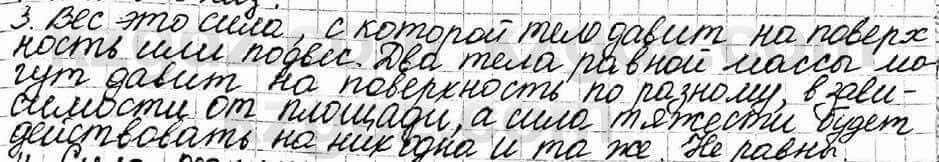 3. Вес это сила, с которой тело давит на поверх
ность или подвес. Два тела равной массы мо-
гут давит на поверхность по разному, в зави-
симости от площади, а сила тяжести будет
действовать на них одна и та же. Не равны.